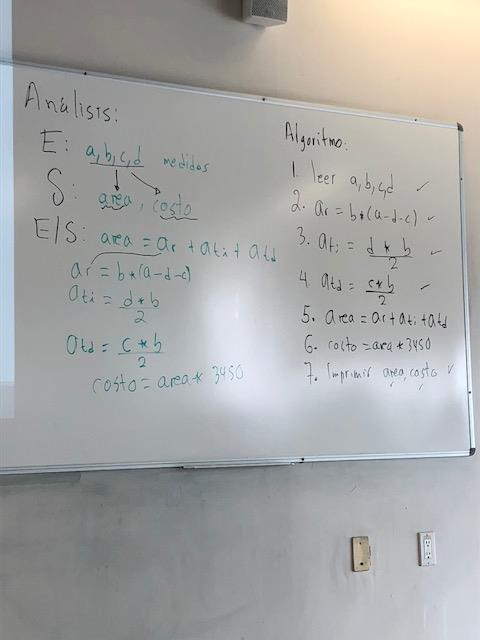 Análisis:
E: a,b,c,d medidas
S: area, costo
E/S: area = ar + ati + atd
ar = b*(a-d-c)
ati = d*b/2
atd = c*b/2
costo = area * 3450
Algoritmo:
1. leer a,b,c,d ✓
2. ar = b*(a-d-c) ✓
3. ati = d*b/2 ✓
4. atd = c*b/2 ✓
5. area = ar+ati+atd
6. costo = area*3450
7. Imprimir area, costo ✓